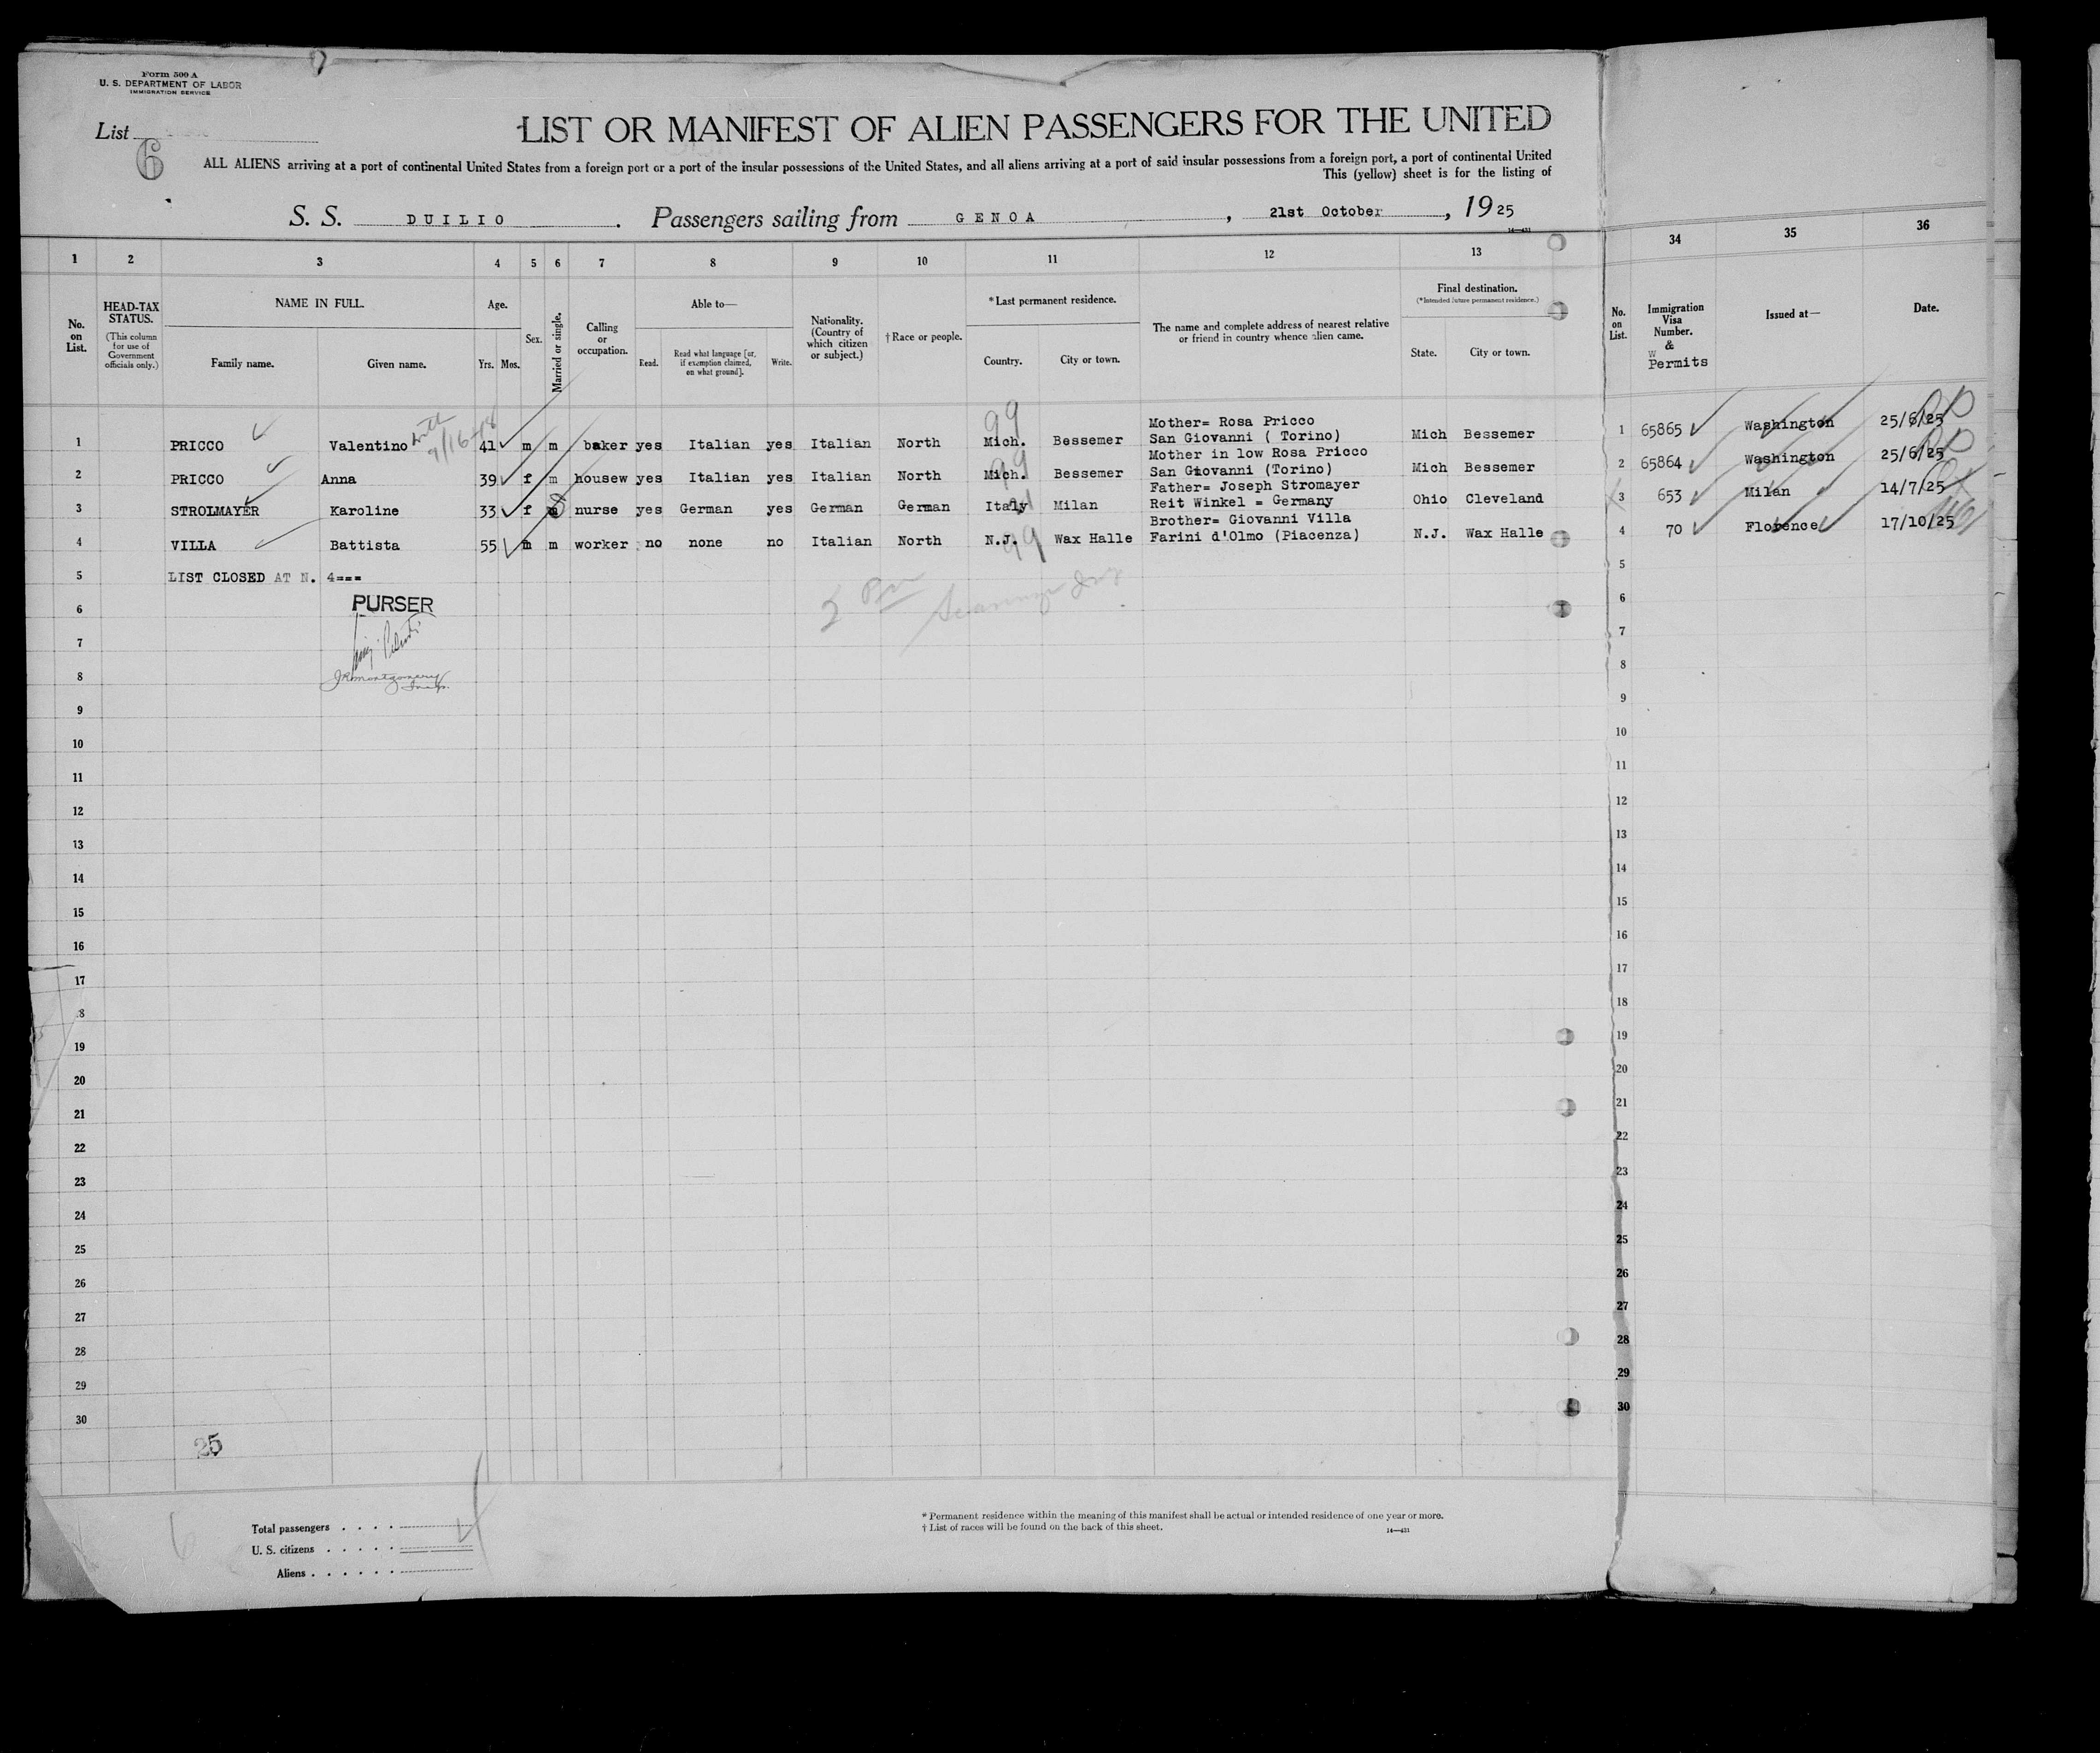 Form 500 A
U. S. DEPARTMENT OF LABOR
IMMIGRATION SERVICE
List
6
LIST OR MANIFEST OF ALIEN PASSENGERS FOR THE UNITED
ALL ALIENS arriving at a port of continental United States from a foreign port or a port of the insular possessions of the United States, and all aliens arriving at a port of said insular possessions from a foreign port, a port of continental United
This (yellow) sheet is for the listing of
S. S. DUILIO. Passengers sailing from GENOA, 21st October, 1925
14—431
1 2 3 4 5 6 7 8 9 10 11 12 13 34 35 36
No. on List.
HEAD-TAX STATUS.
(This column for use of Government officials only.)
NAME IN FULL.
Family name. Given name.
Age.
Yrs. Mos.
Sex.
Married or single.
Calling or occupation.
Able to—
Read. Read what language [or, if exemption claimed, on what ground]. Write.
Nationality. (Country of which citizen or subject.)
† Race or people.
* Last permanent residence.
Country. City or town.
The name and complete address of nearest relative or friend in country whence alien came.
Final destination.
(* Intended future permanent residence.)
State. City or town.
No. on List.
Immigration Visa Number. & Permits
Issued at—
Date.
99
Mother= Rosa Pricco
1 PRICCO Valentino 41 m m baker yes Italian yes Italian North Mich. Bessemer San Giovanni ( Torino) Mich Bessemer 1 65865 Washington 25/6/25
Mother in low Rosa Pricco
2 PRICCO Anna 39 f m housew yes Italian yes Italian North Mich. Bessemer San Giovanni (Torino) Mich Bessemer 2 65864 Washington 25/6/25
Father= Joseph Stromayer
3 STROLMAYER Karoline 33 f nurse yes German yes German German Italy Milan Reit Winkel = Germany Ohio Cleveland 3 653 Milan 14/7/25
Brother= Giovanni Villa
4 VILLA Battista 55 m m worker no none no Italian North N.J. Wax Halle Farini d'Olmo (Piacenza) N.J. Wax Halle 4 70 Florence 17/10/25
99
5 LIST CLOSED AT N. 4=== 5
6 PURSER 6
7 7
8 JR Montgomery 8
Insp.
9 9
10 10
11 11
12 12
13 13
14 14
15 15
16 16
17 17
8 18
19 19
20 20
21 21
22 22
23 23
24 24
25 25
26 26
27 27
28 28
29 29
30 30
25
6
Total passengers . . . . 4
U. S. citizens . . . . .
Aliens . . . . . .
* Permanent residence within the meaning of this manifest shall be actual or intended residence of one year or more.
† List of races will be found on the back of this sheet.
14—431